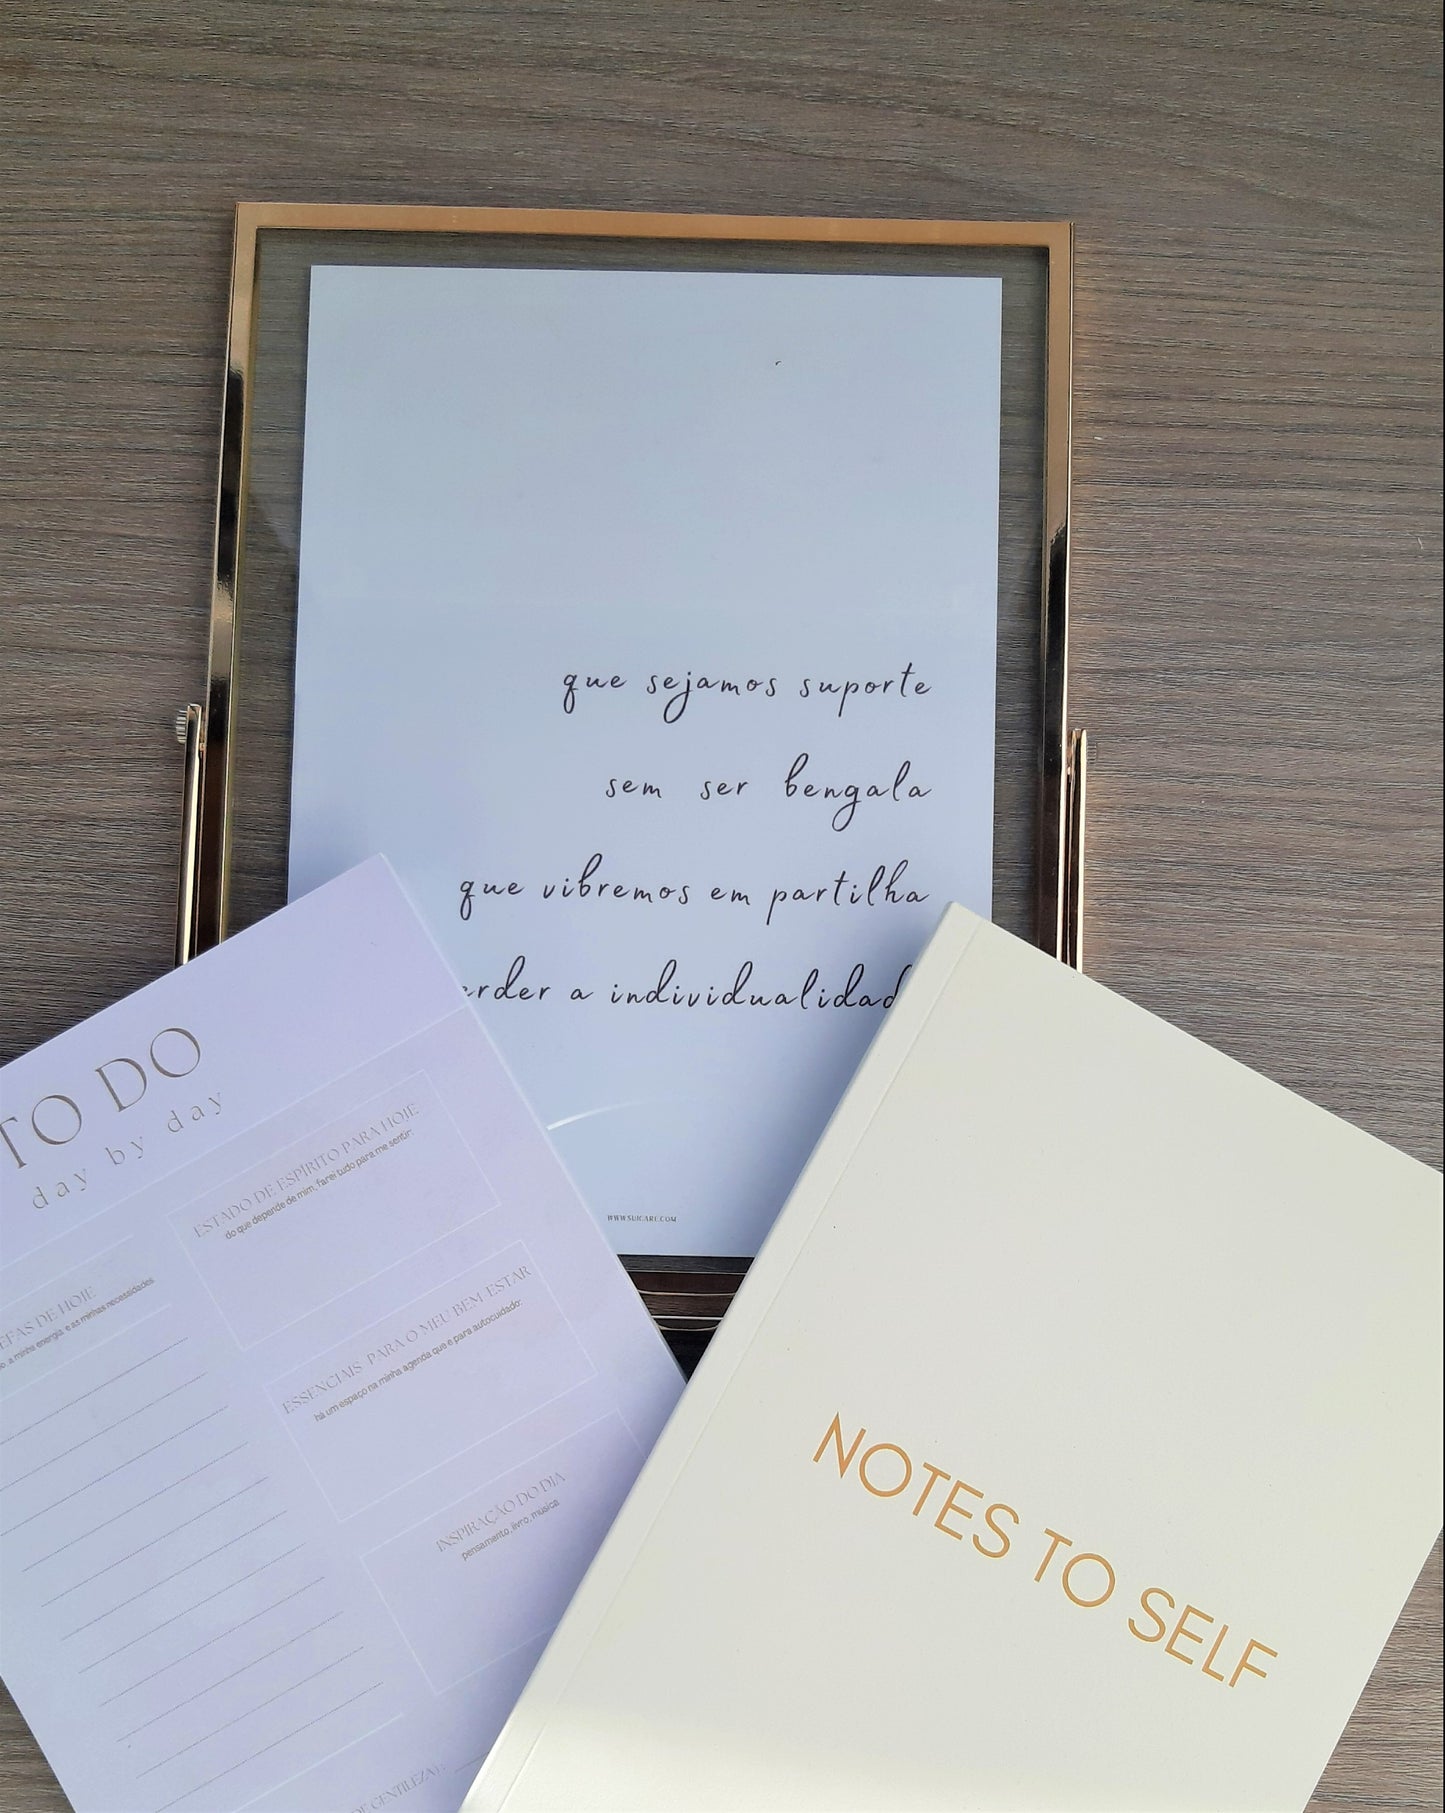 que sejamos suporte
sem ser bengala
que vibremos em partilha
a individualidad
WWW.SUICARE.COM
TO DO
day by day
ESTADO DE ESPÍRITO PARA HOJE
do que depende de mim, farei tudo para me sentir:
DE HOJE
a minha energia e as minhas necessidades
ESSENCIAIS PARA O MEU BEM ESTAR
há um espaço na minha agenda que é para autocuidado:
INSPIRAÇÃO DO DIA
pensamento, livro, música
DE GENTILEZA
NOTES TO SELF